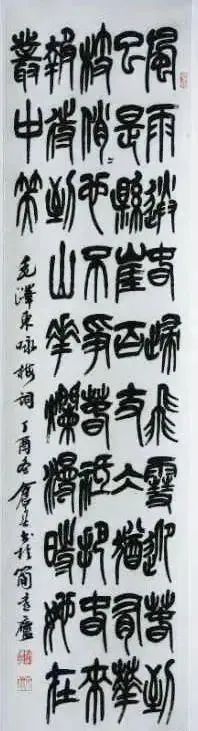 風雨送春歸飛雪迎春到
已是縣崖百丈仌猶有華
枝俏〻也不爭春祇把春來
報待到山華爛漫時她在
叢中笑
毛澤東咏梅詞丁酉冬書於廬